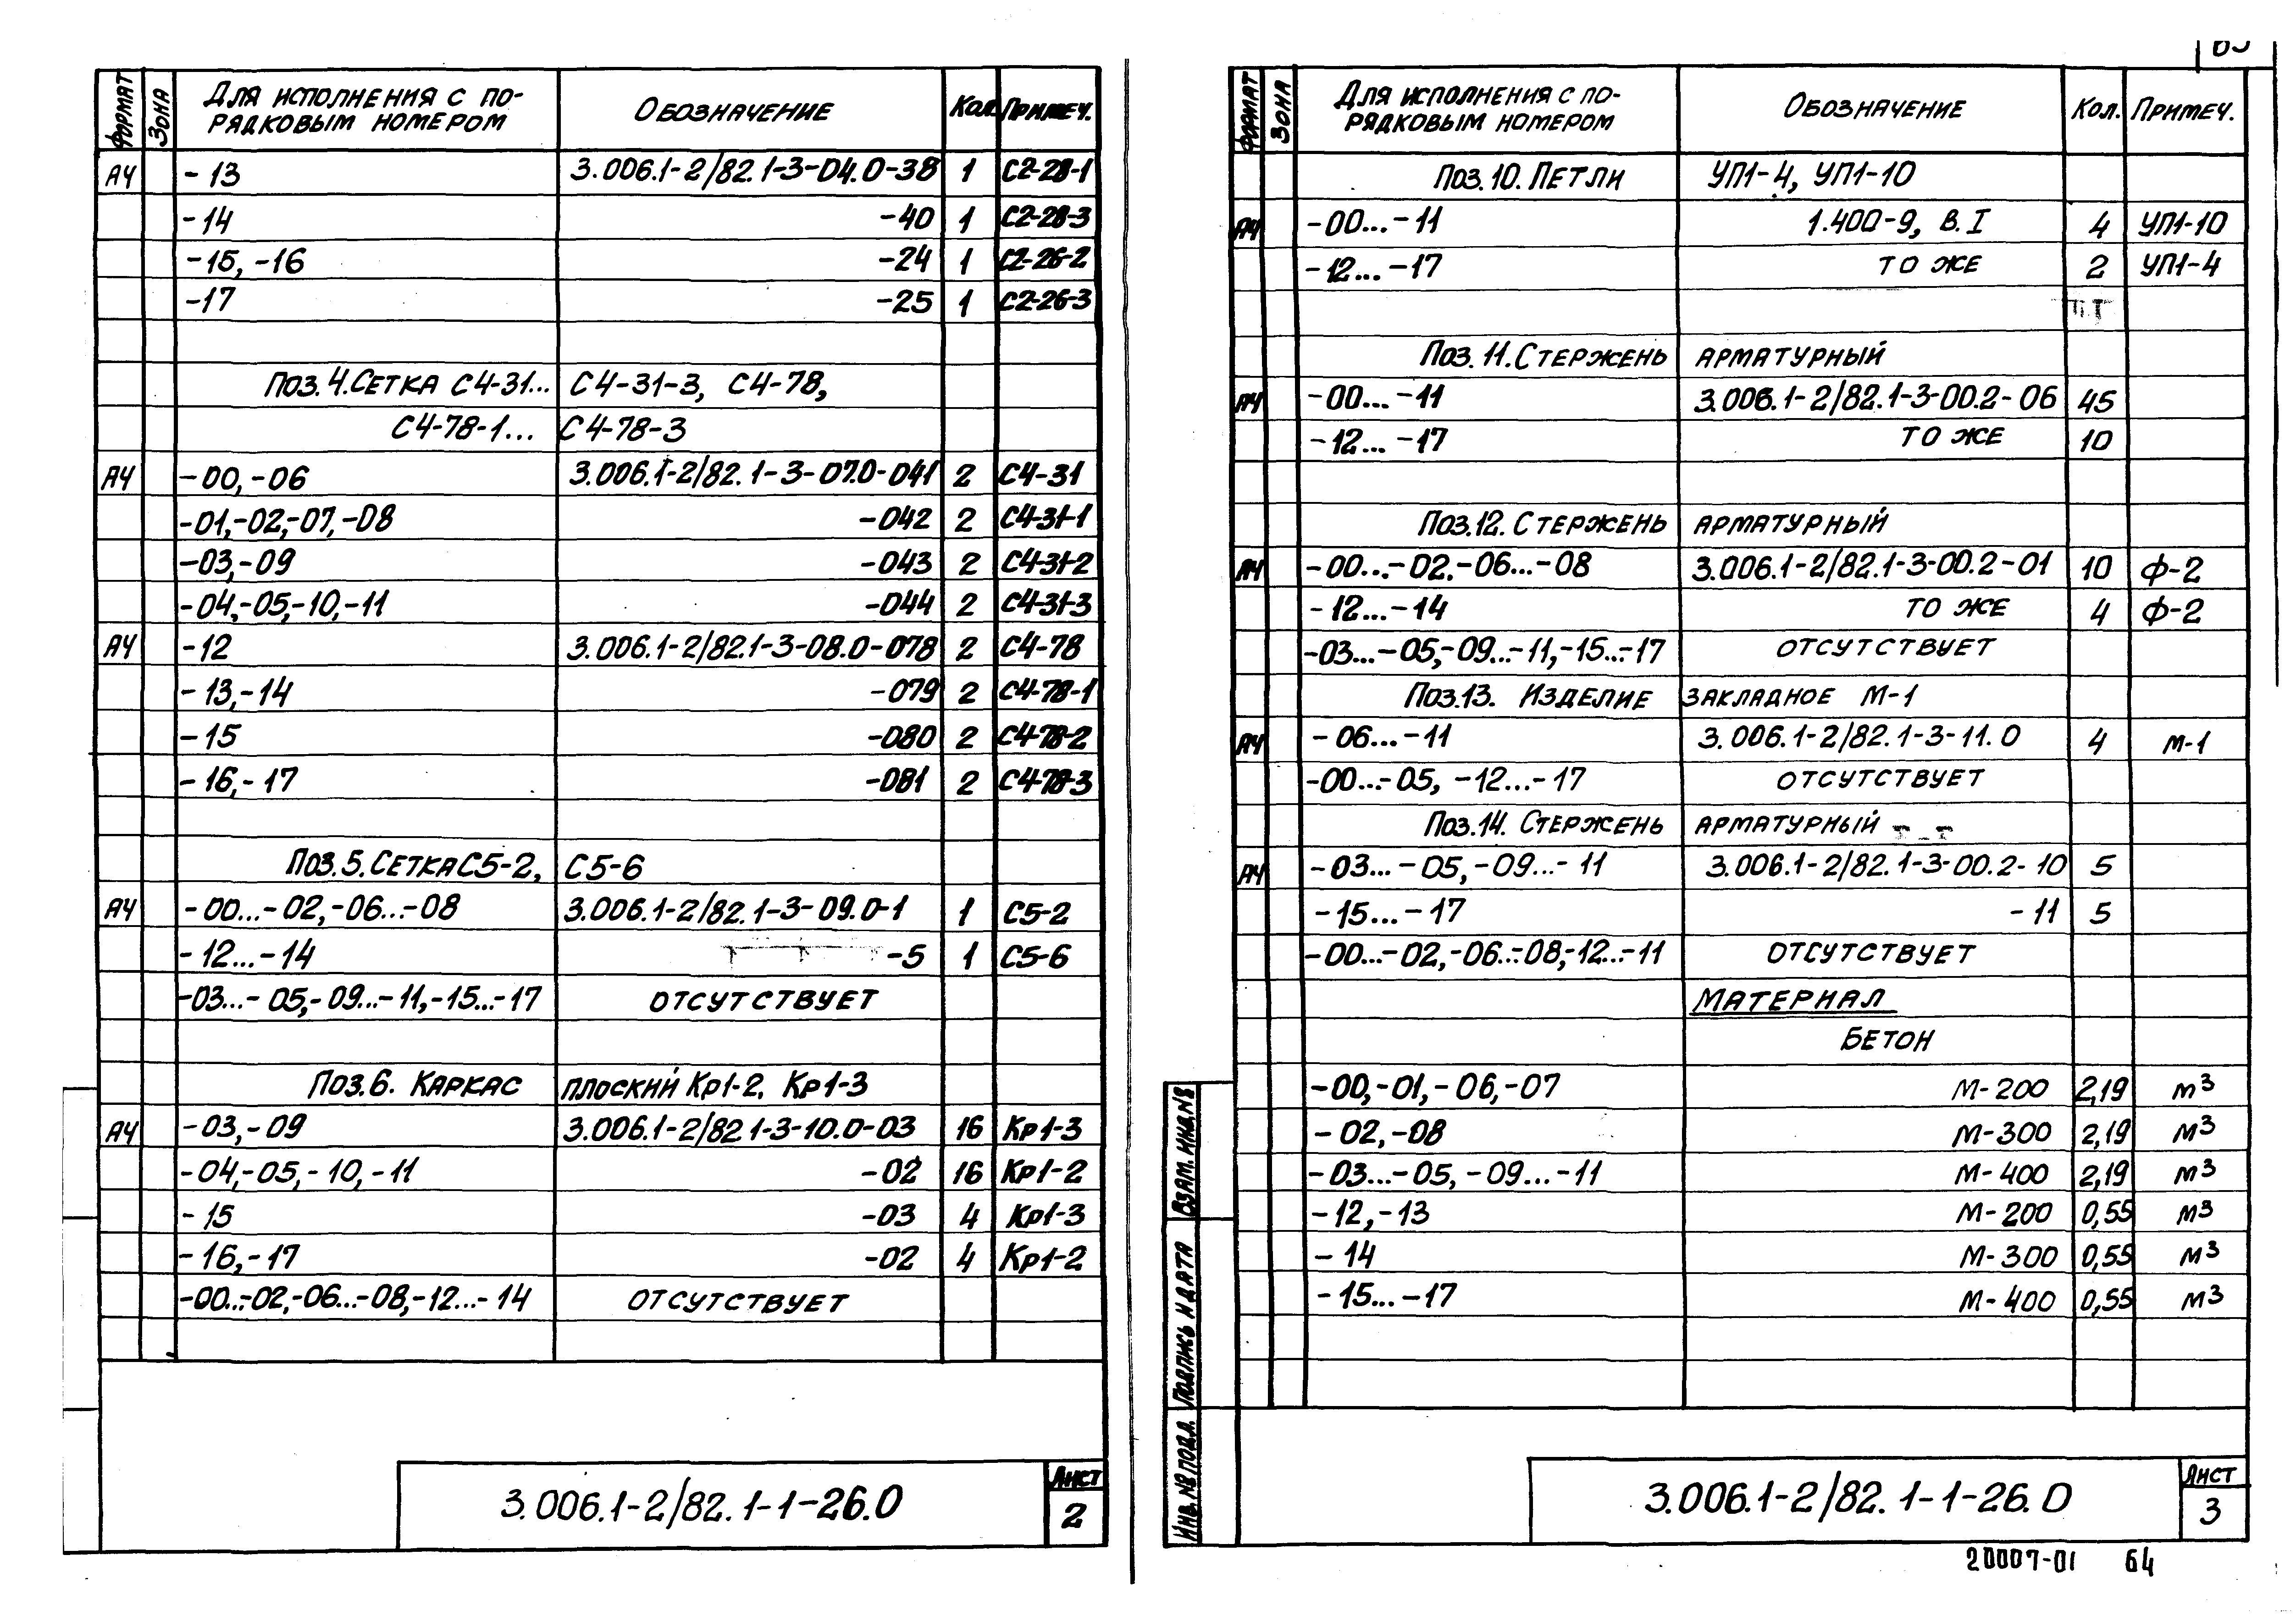 ФОРМАТ ЗОНА Для исполнения с по- Обозначение Кол. Примеч.
рядковым номером
А4 -13 3.006.1-2/82.1-3-04.0-38 1 С2-28-1
-14 -40 1 С2-28-3
-15, -16 -24 1 С2-26-2
-17 -25 1 С2-26-3
Поз. 4. Сетка С4-31... С4-31-3, С4-78,
С4-78-1... С4-78-3
А4 -00, -06 3.006.1-2/82.1-3-07.0-041 2 С4-31
-01,-02,-07,-08 -042 2 С4-31-1
-03,-09 -043 2 С4-31-2
-04,-05,-10,-11 -044 2 С4-31-3
А4 -12 3.006.1-2/82.1-3-08.0-078 2 С4-78
-13,-14 -079 2 С4-78-1
-15 -080 2 С4-78-2
-16,-17 -081 2 С4-78-3
Поз. 5. Сетка С5-2, С5-6
А4 -00...-02,-06...-08 3.006.1-2/82.1-3-09.0-1 1 С5-2
-12...-14 -5 1 С5-6
-03...-05,-09...-11,-15...-17 отсутствует
Поз. 6. Каркас плоский Кр1-2, Кр1-3
А4 -03,-09 3.006.1-2/82 1-3-10.0-03 16 Кр1-3
-04,-05,-10,-11 -02 16 Кр1-2
-15 -03 4 Кр1-3
-16,-17 -02 4 Кр1-2
-00...-02,-06...-08,-12...-14 отсутствует
3.006.1-2/82.1-1-26.0 Лист
2
ФОРМАТ ЗОНА Для исполнения с по- Обозначение Кол. Примеч.
рядковым номером
Поз. 10. Петли УП1-4, УП1-10
А4 -00...-11 1.400-9, В.I 4 УП1-10
-12...-17 то же 2 УП1-4
Поз. 11. Стержень арматурный
А4 -00...-11 3.006.1-2/82.1-3-00.2-06 45
-12...-17 то же 10
Поз. 12. Стержень арматурный
А4 -00...-02.-06...-08 3.006.1-2/82.1-3-00.2-01 10 Ф-2
-12...-14 то же 4 Ф-2
-03...-05,-09...-11,-15...-17 отсутствует
Поз. 13. Изделие закладное М-1
А4 -06...-11 3.006.1-2/82.1-3-11.0 4 М-1
-00...-05, -12...-17 отсутствует
Поз. 14. Стержень арматурный
А4 -03...-05,-09...-11 3.006.1-2/82.1-3-00.2-10 5
-15...-17 -11 5
-00...-02,-06...-08,-12...-11 отсутствует
Материал
Бетон
-00,-01,-06,-07 М-200 2,19 м³
-02,-08 М-300 2,19 м³
-03...-05,-09...-11 М-400 2,19 м³
-12,-13 М-200 0,55 м³
-14 М-300 0,55 м³
-15...-17 М-400 0,55 м³
Взам. инв.№
Подпись и дата
Инв. № подл.
3.006.1-2/82.1-1-26.0 Лист
3
20007-01 64